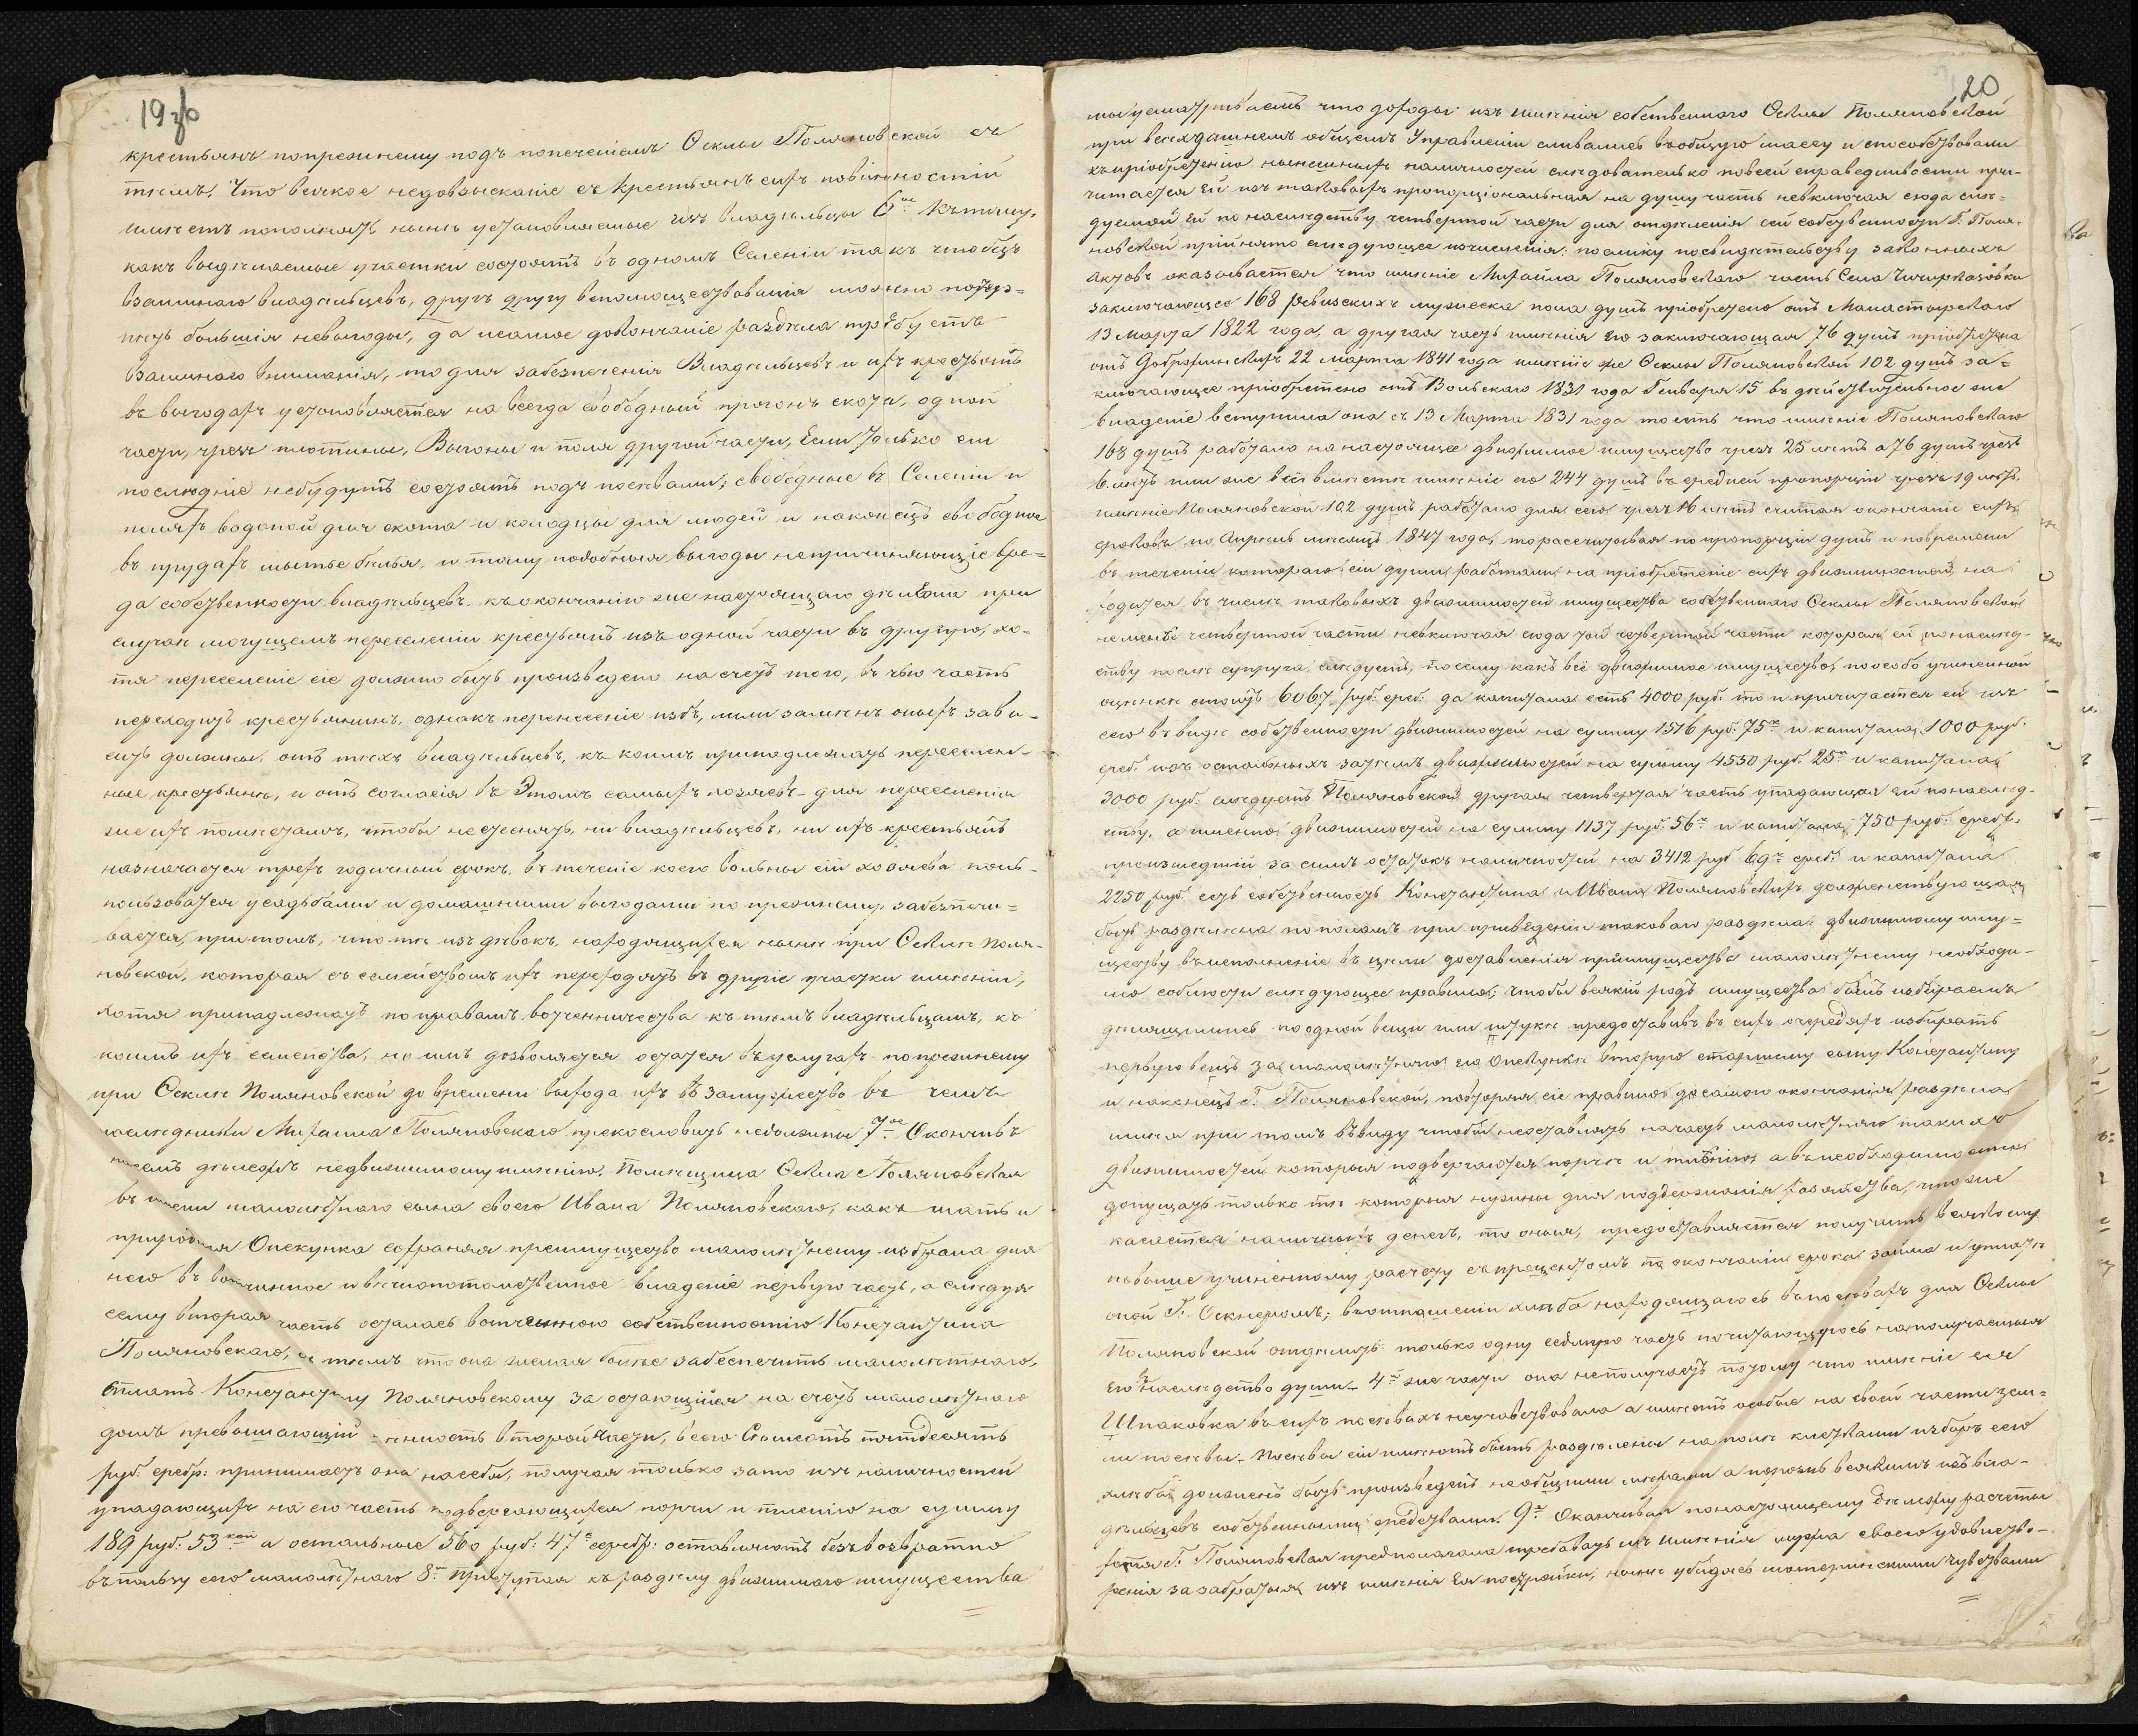 19 зв
крестьянъ попрежнему подъ попеченіемъ Феклы Поляновской съ
тѣмъ, что всякое недовзысканіе съ крестьянъ сихъ повинностій
имѣетъ пополнять нынѣ установляемые изъ владѣльцы 6ое Къ тому,
какъ выдѣляемые участки состоятъ въ одномъ Селеніи такъ чтобезъ
взаимнаго владѣльцевъ, другъ другу вспомоществованія можно потер=
пѣть большія невыгоды, да исамое доkончаніе раздѣла требуетъ
взаимнаго вниманія, то для забезпеченія Владѣльцевъ и ихъ крестьянъ
въ выгодахъ установляется на всегда свободный прогонъ скота, одной
части, чрезъ плотины, Выгоны и поля другой части, Если только сіи
послѣдніе небудутъ состоять подъ посѣвами; свободные въ Селеніи и
поляхъ водопой для скота и колодцы для людей и наконецъ свободное
въ прудахъ мытье бѣлья, и тому подобныя выгоды непричиняющіе вре=
да собственности владѣльцевъ. къ окончанію же настоящаго дѣлежа при
случаѣ могущемъ переселеніи крестьянъ изъ одной части въ другую, хо-
тя переселеніе сіе должно быть произведено насчетъ того, въ чью часть
переходитъ крестьянинъ, однакъ перенесеніе избъ, или замѣнъ оныхъ зави-
сить должны, отъ тѣхъ владѣльцевъ, къ коимъ принадлежатъ переселен-
ные крестьяне, и отъ согласія въ Этомъ самыхъ хозяевъ - для переселенія
же ихъ помѣстамъ, чтобы нестеснять, ни владѣльцевъ, ни ихъ крестьянъ
назначается трехъ годичный срокъ, въ теченіе коего вольны сіи хозяева поль-
пользоватся усадьбами и домашними выгодами по прежнему, забезпечи=
вается, притомъ, что тѣ изъ дѣвокъ, находящихся нынѣ при Феклѣ Поля-
новской, которая съ семействомъ ихъ переходятъ въ другіе участки имѣній,
хотя принадлежатъ по правамъ вотченничества къ тѣмъ владѣльцамъ, къ
коимъ ихъ семейства, но имъ дозволяется остатся въ услугахъ попрежнему
при Феклѣ Поляновской до времени выхода ихъ въ замужество въ чемъ
наслѣдники Михаила Поляновскаго прекословить недолжны 7ое Окончивъ
насемъ дѣлежъ недвижимому имѣнію, Помѣщица Фекла Поляновская
въ имени малолѣтнаго сына своего Ивана Поляновскаго, какъ мать и
природная Опекунка сохраняя преимущество малолѣтнему избрала для
него въ вотчинное и вѣчнопотомственное владѣніе первую часть, а слѣдуя
сему вторая часть осталась вотченною собственностію Констатина
Поляновскаго, съ тѣмъ что она желая болѣе забеспечить малолѣтнаго,
платъ Констатину Поляновскому за остающійся на счетъ малолѣтнаго
домъ превышающій цѣнность второй части, всего Семьсотъ пятдесятъ
руб: сребр: принимаетъ она насебя, получая только зато изъ наличностей
упадающихъ на его часть подвергающихся порчи и тленію на сумму
189 руб: 53 коп а остальные 560 руб: 47 к серебр: оставляютъ безъвозвратно
въ пользу сего малолѣтнаго 8е Приступая къ раздѣлу движимаго имущества

20
мы усматриваемъ что доходы изъ имѣнія собственнаго Феклы Поляновской
при всехдашнемъ общемъ Управленіи сливались въобщую массу и способствовали
къ пріобретенію нынешныхъ наличностей слѣдователько повсей справедливости при-
читается Ей изъ таковыхъ пропорціональная на душу часть невключая сюда слѣ=
дуемой Ей по наслѣдству четвертой части для отдѣленія сей собственности Г. Поля-
новской прійнято слѣдующее изчисленія: поелику посвидѣтельству законныхъ
актовъ оказывается что имѣніе Михайла Поляновскаго часть Села Чичиркозовки
заключающее 168 ревизскихъ мужеска пола душъ пріобретено отъ Монастырскаго
13 Марта 1822 года, а другая часть имѣнія его заключающая 76 душъ пріобретена
отъ Добржинскихъ 22 марта 1841 года имѣніе же Феклы Поляновской 102 душъ за=
ключающее пріобретено отъ Вольскаго 1831 года Генваря 15 въ дѣйствительное же
владѣніе вступила она съ 13 Марта 1831 года тоесть что имѣніе Поляновскаго
168 душъ работало на настоящее движимое имущество чрезъ 25 лѣтъ а 76 душъ чрезъ
6. лѣтъ или же всѣ вмѣсте имѣніе его 244 душъ въ средней пропорціи чрезъ 19 лѣтъ,
имѣніе Поляновской 102 душъ работало для сего чрезъ 16 лѣтъ считая окончаніе сихъ
сроковъ по Апрель мѣсяцъ 1847 года, то расчитывая по пропорціи душъ и повремени
въ теченіи котораго сіи души работали на пріобретеніе сихъ движимостей, на
ходится въ числѣ таковыхъ движимостей имущества собственнаго Феклы Поляновской
неменѣе четвертой части невключая сюда той четвертой части которая ей понаслед-
ству послѣ супруга слѣдуетъ, посему какъ всё движимое имущество, пособо учиненной
оцѣнкѣ стоитъ 6067 руб: среб: да капитала есть 4000 руб: то и причитается ей изъ
сего въ видѣ собственности движимостей на сумму 1516 руб: 75 к и капитала, 1000 руб:
среб: изъ остальныхъ затѣмъ движимостей на сумму 4550 руб: 25 к и капитала
3000 руб: слѣдуетъ Поляновской другая четвертая часть упадающая Ей понаслед-
ству, а именно: движимостей на сумму 1137 руб: 56 к и капитала 750 руб: сребр:
произшедшій за симъ остатокъ наличностей на 3412 руб 69 к среб: и капитала
2250 руб: есть собственность Констатина и Ивана Поляновскихъ долженствующая
быть раздѣлена пополамъ при приведеніи таковаго раздѣла движимому иму=
ществу въисполненіе въ цѣли доставленія преимущества малолѣтнему необходи-
мо соблюсти слѣдующее правило; чтобы всякій родъ имущества былъ избираемъ
дѣлящимись по одной вещи или штуки предоставивъ въ сихъ очередяхъ избирать
первую вещь за малолѣтнаго его Опекункѣ вторую старшему сыну Констатину
и наконецъ Г. Поляновской, повторяя сіе правило досамаго окончанія раздѣла
имѣя при томъ въвиду чтобы неоставлять начасть малолѣтняго такихъ
движимостей которыя подвергаются порчѣ и тленію, а въ необходимости
допущать только тѣ которыя нужны для поддержанія хозяйства, что же
касается наличныхъ денегъ, то оныя, предоставляется получить всякому
повыше учиненному расчету съ процентомъ по окончаніи срока займа и уплатѣ
оной Г. Оскнеромъ; въотношеніи хлѣба находящагось въпосѣвахъ для Феклы
Поляновской отдѣлить только одну седмую часть почитающуюсь наполучаемыя
Ею въ наслѣдство души - 4ю же части она неполучаетъ потому что имѣніе ея
Шпаковка въ сихъ посѣвахъ неучавствовала а имѣетъ особые на своей части зем=
ли посѣвы - Посѣвы сіи имѣютъ быть раздѣлены на поле клетками изборъ сего
хлѣба долженъ быть произведенъ необщими мѣрами а порознь всякимъ изъ вла-
дѣльцевъ собственными средствами. 9е Оканчивая понастоящему дѣлежу расчеты
хотя Г. Поляновская предполагала требавать изъ имѣнія мужа своего удовлетво-
ренія за забратыя изъ имѣнія Ея постройки, нынѣ убѣдясь материнскими чувствами